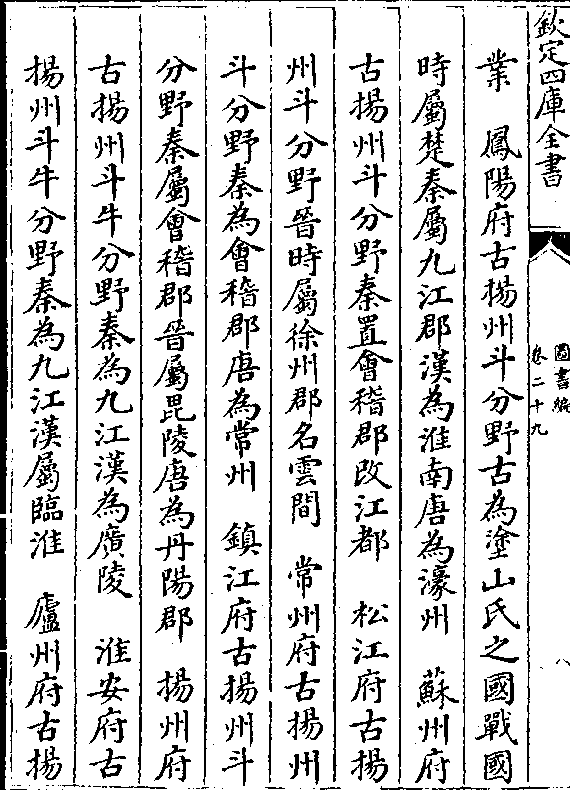 欽定四庫全書
圖書編
卷二十九
八
業　鳳陽府古揚州斗分野古為塗山氏之國戰國
時屬楚秦屬九江郡漢為淮南唐為濠州　蘇州府
古揚州斗分野秦置會稽郡改江都　松江府古揚
州斗分野晉時屬徐州郡名雲間　常州府古揚州
斗分野秦為會稽郡唐為常州　鎮江府古揚州斗
分野秦屬會稽郡晉屬毘陵唐為丹陽郡　揚州府
古揚州斗牛分野秦為九江漢為廣陵　淮安府古
揚州斗牛分野秦為九江漢屬臨淮　廬州府古揚